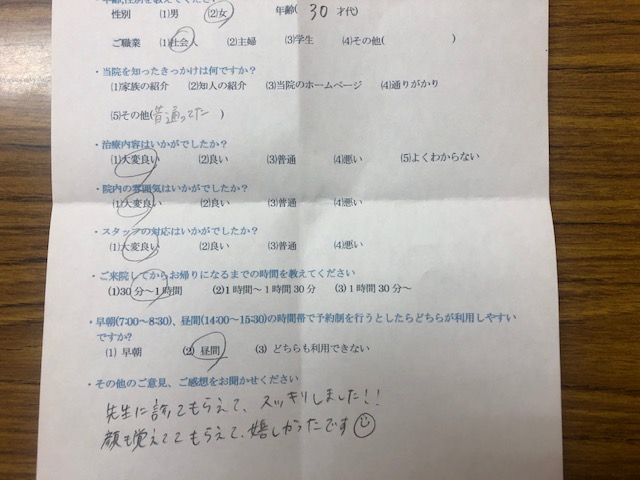 ・年齢、性別を教えてください
性別 (1)男 (2)女 年齢( 30 才代)
ご職業 (1)社会人 (2)主婦 (3)学生 (4)その他( )
・当院を知ったきっかけは何ですか?
(1)家族の紹介 (2)知人の紹介 (3)当院のホームページ (4)通りがかり
(5)その他(昔通ってた )
・治療内容はいかがでしたか?
(1)大変良い (2)良い (3)普通 (4)悪い (5)よくわからない
・院内の雰囲気はいかがでしたか?
(1)大変良い (2)良い (3)普通 (4)悪い
・スタッフの対応はいかがでしたか?
(1)大変良い (2)良い (3)普通 (4)悪い
・ご来院してからお帰りになるまでの時間を教えてください
(1)30分～1時間 (2)1時間～1時間30分 (3)1時間30分～
・早朝(7:00～8:30)、昼間(14:00～15:30)の時間帯で予約制を行うとしたらどちらが利用しやすい
ですか?
(1) 早朝 (2) 昼間 (3) どちらも利用できない
・その他のご意見、ご感想をお聞かせください
先生に診てもらえて、スッキリしました!!
顔も覚えててもらえて、嬉しかったです